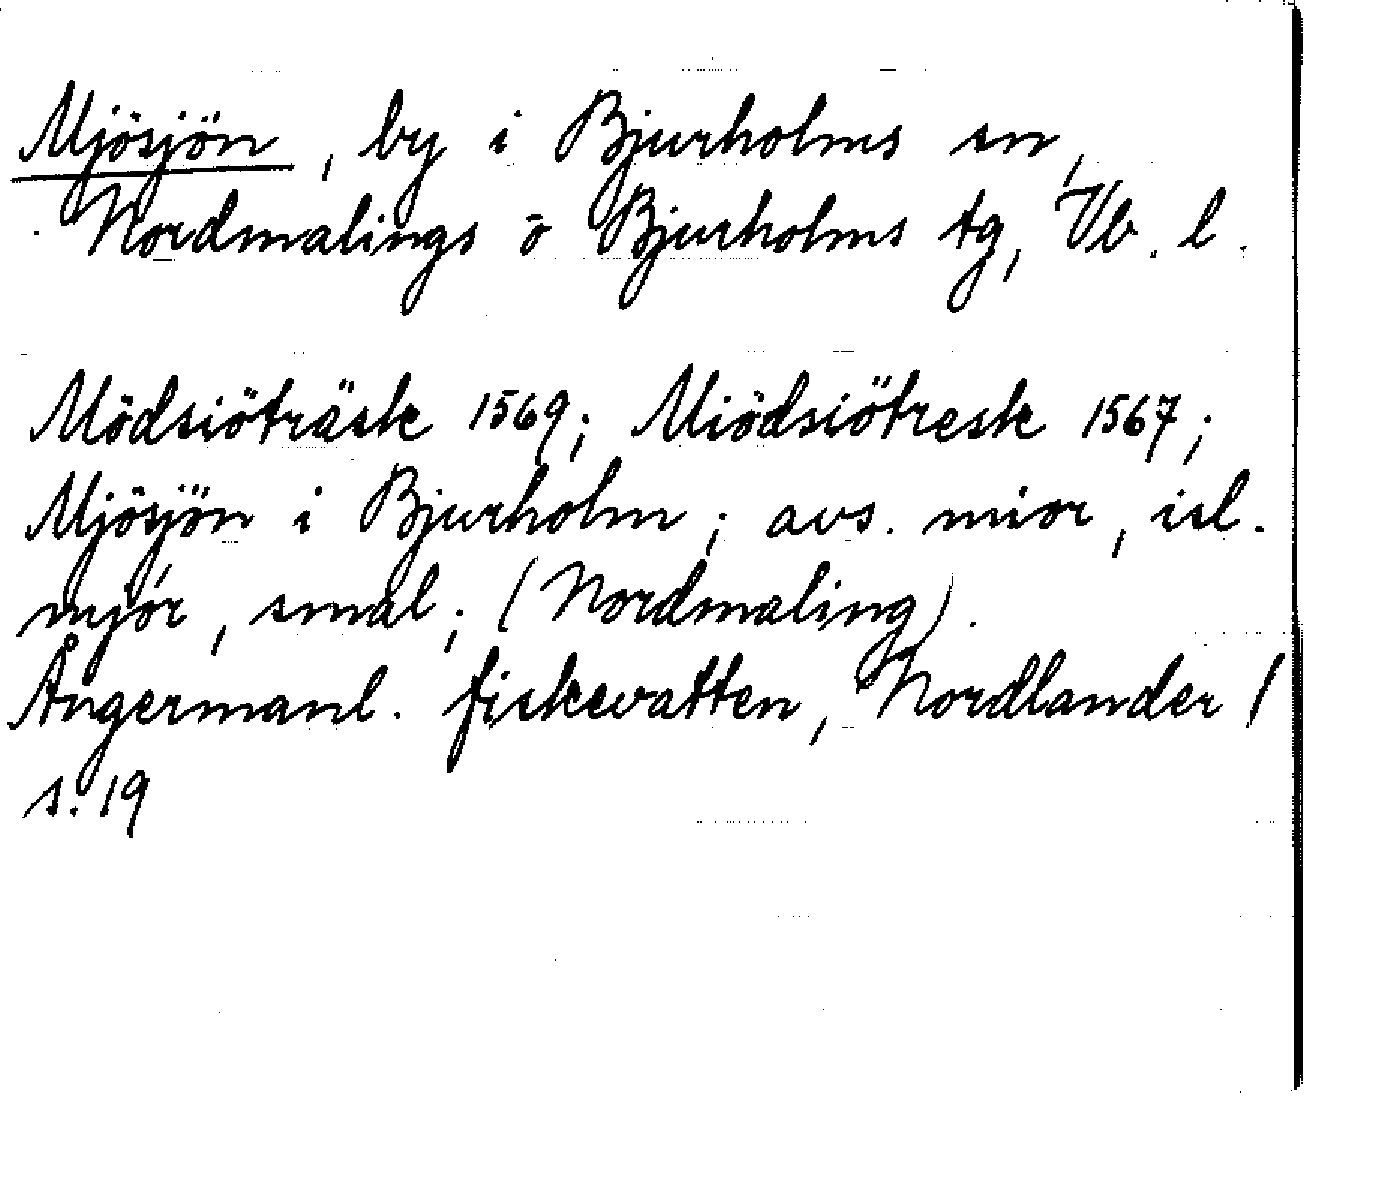 Mjösjön, by i Bjurholms sn,
Nordmalings o Bjurholms tg, Vb. l.
Mödsiöträsk 1569; Miödsiötresk 1567;
Mjösjön i Bjurholm; avs. mior, isl.
mjór, smal; (Nordmaling).
Ångermanl. fiskevatten, Nordlander /
s. 19